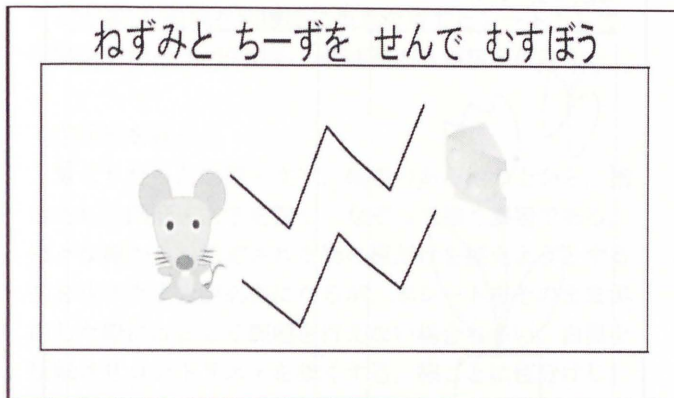 ねずみと ちーずを せんで むすぼう